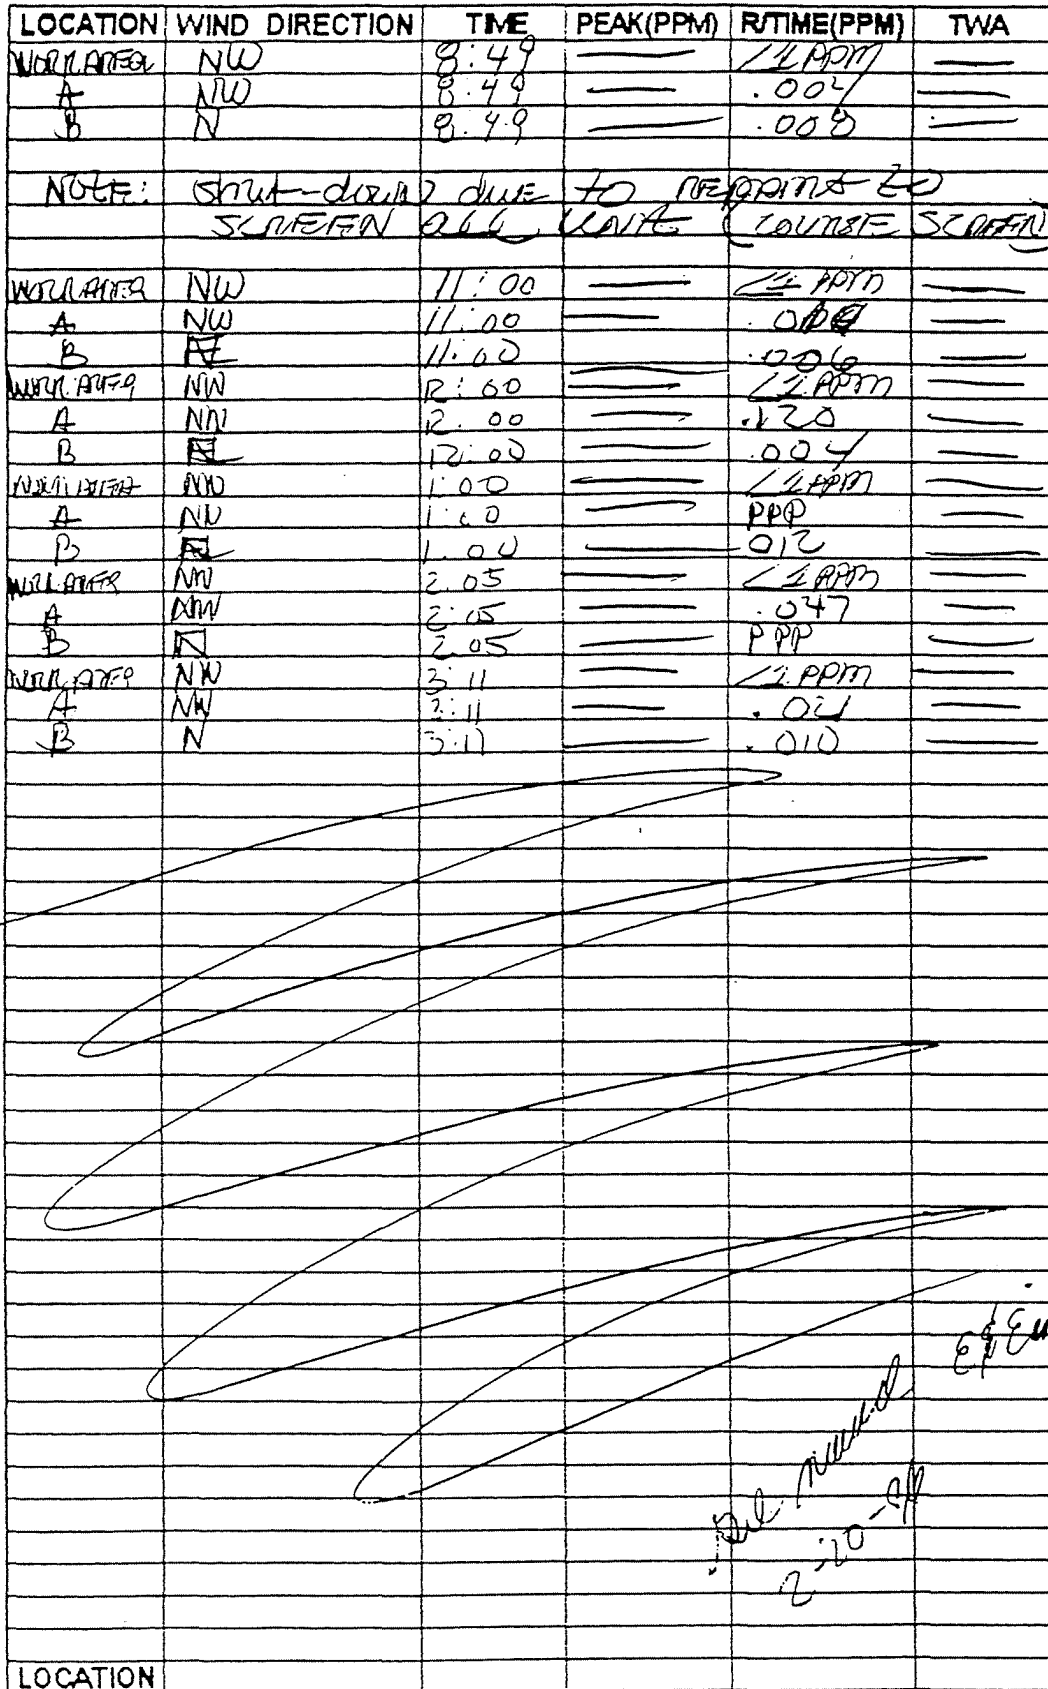 LOCATION WIND DIRECTION TIME PEAK(PPM) R/TIME(PPM) TWA
WORK AREA NW 8:49 — <1 PPM —
A NW 8:49 — .004 —
B N 8:49 — .008 —
NOTE: (Shut-down) due to
SCREEN UNIT (COURSE SCREEN)
WORK AREA NW 11:00 — <1 PPM —
A NW 11:00 —
B 11:00 .006 —
WORK AREA NW 12:00 — <1 PPM —
A NW 12:00 — .120 —
B 12:00 — .004 —
WORK AREA NW 1:00 — <1 PPM —
A NW 1:00 — PPP —
B 1:00 — .012 —
WORK AREA NW 2:05 — <1 PPM —
A NW 2:05 — .047 —
B N 2:05 — PPP —
WORK AREA NW 3:11 — <1 PPM —
A NW 3:11 — —
B N 3:11 — .010 —
LOCATION